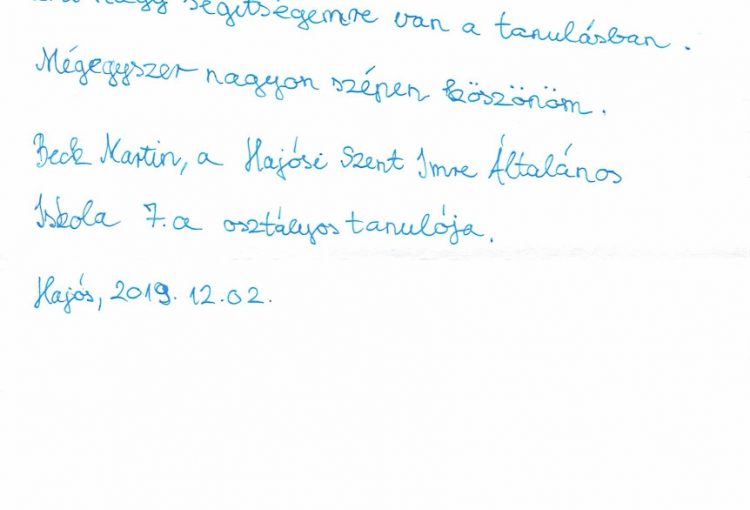 nagy segítségemre van a tanulásban.
Mégegyszer nagyon szépen köszönöm.
Beck Martin, a Hajósi Szent Imre Általános
Iskola 7.a osztályos tanulója.
Hajós, 2019. 12.02.